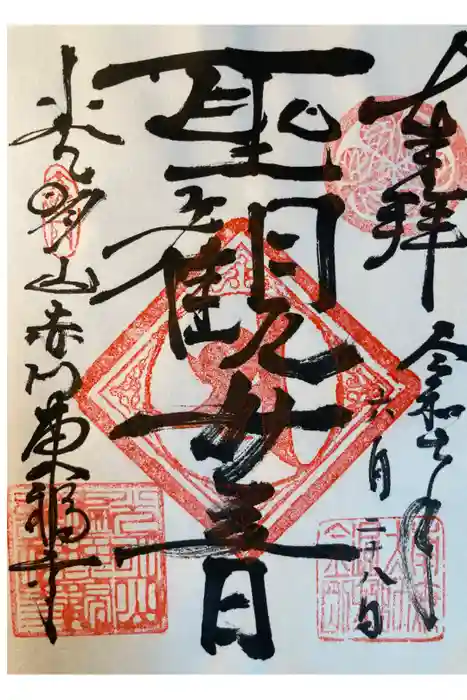 奉拝
令和七年
六月二十八日
聖観世音
光明山赤門東福寺